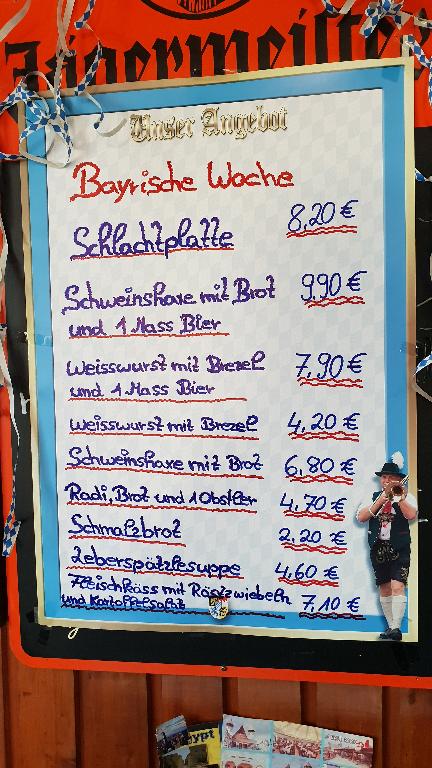 Jägermeister
Unser Angebot
Bayrische Woche
Schlachtplatte 8,20 €
Schweinshaxe mit Brot 9,90 €
und 1 Mass Bier
Weisswurst mit Brezel 7,90 €
und 1 Mass Bier
Weisswurst mit Brezel 4,20 €
Schweinshaxe mit Brot 6,80 €
Radi, Brot und 1 Obstler 4,70 €
Schmalzbrot 2,20 €
Leberspätzlesuppe 4,60 €
Fleischkäss mit Röstzwiebeln 7,10 €
und Kartoffelsalat
ypt